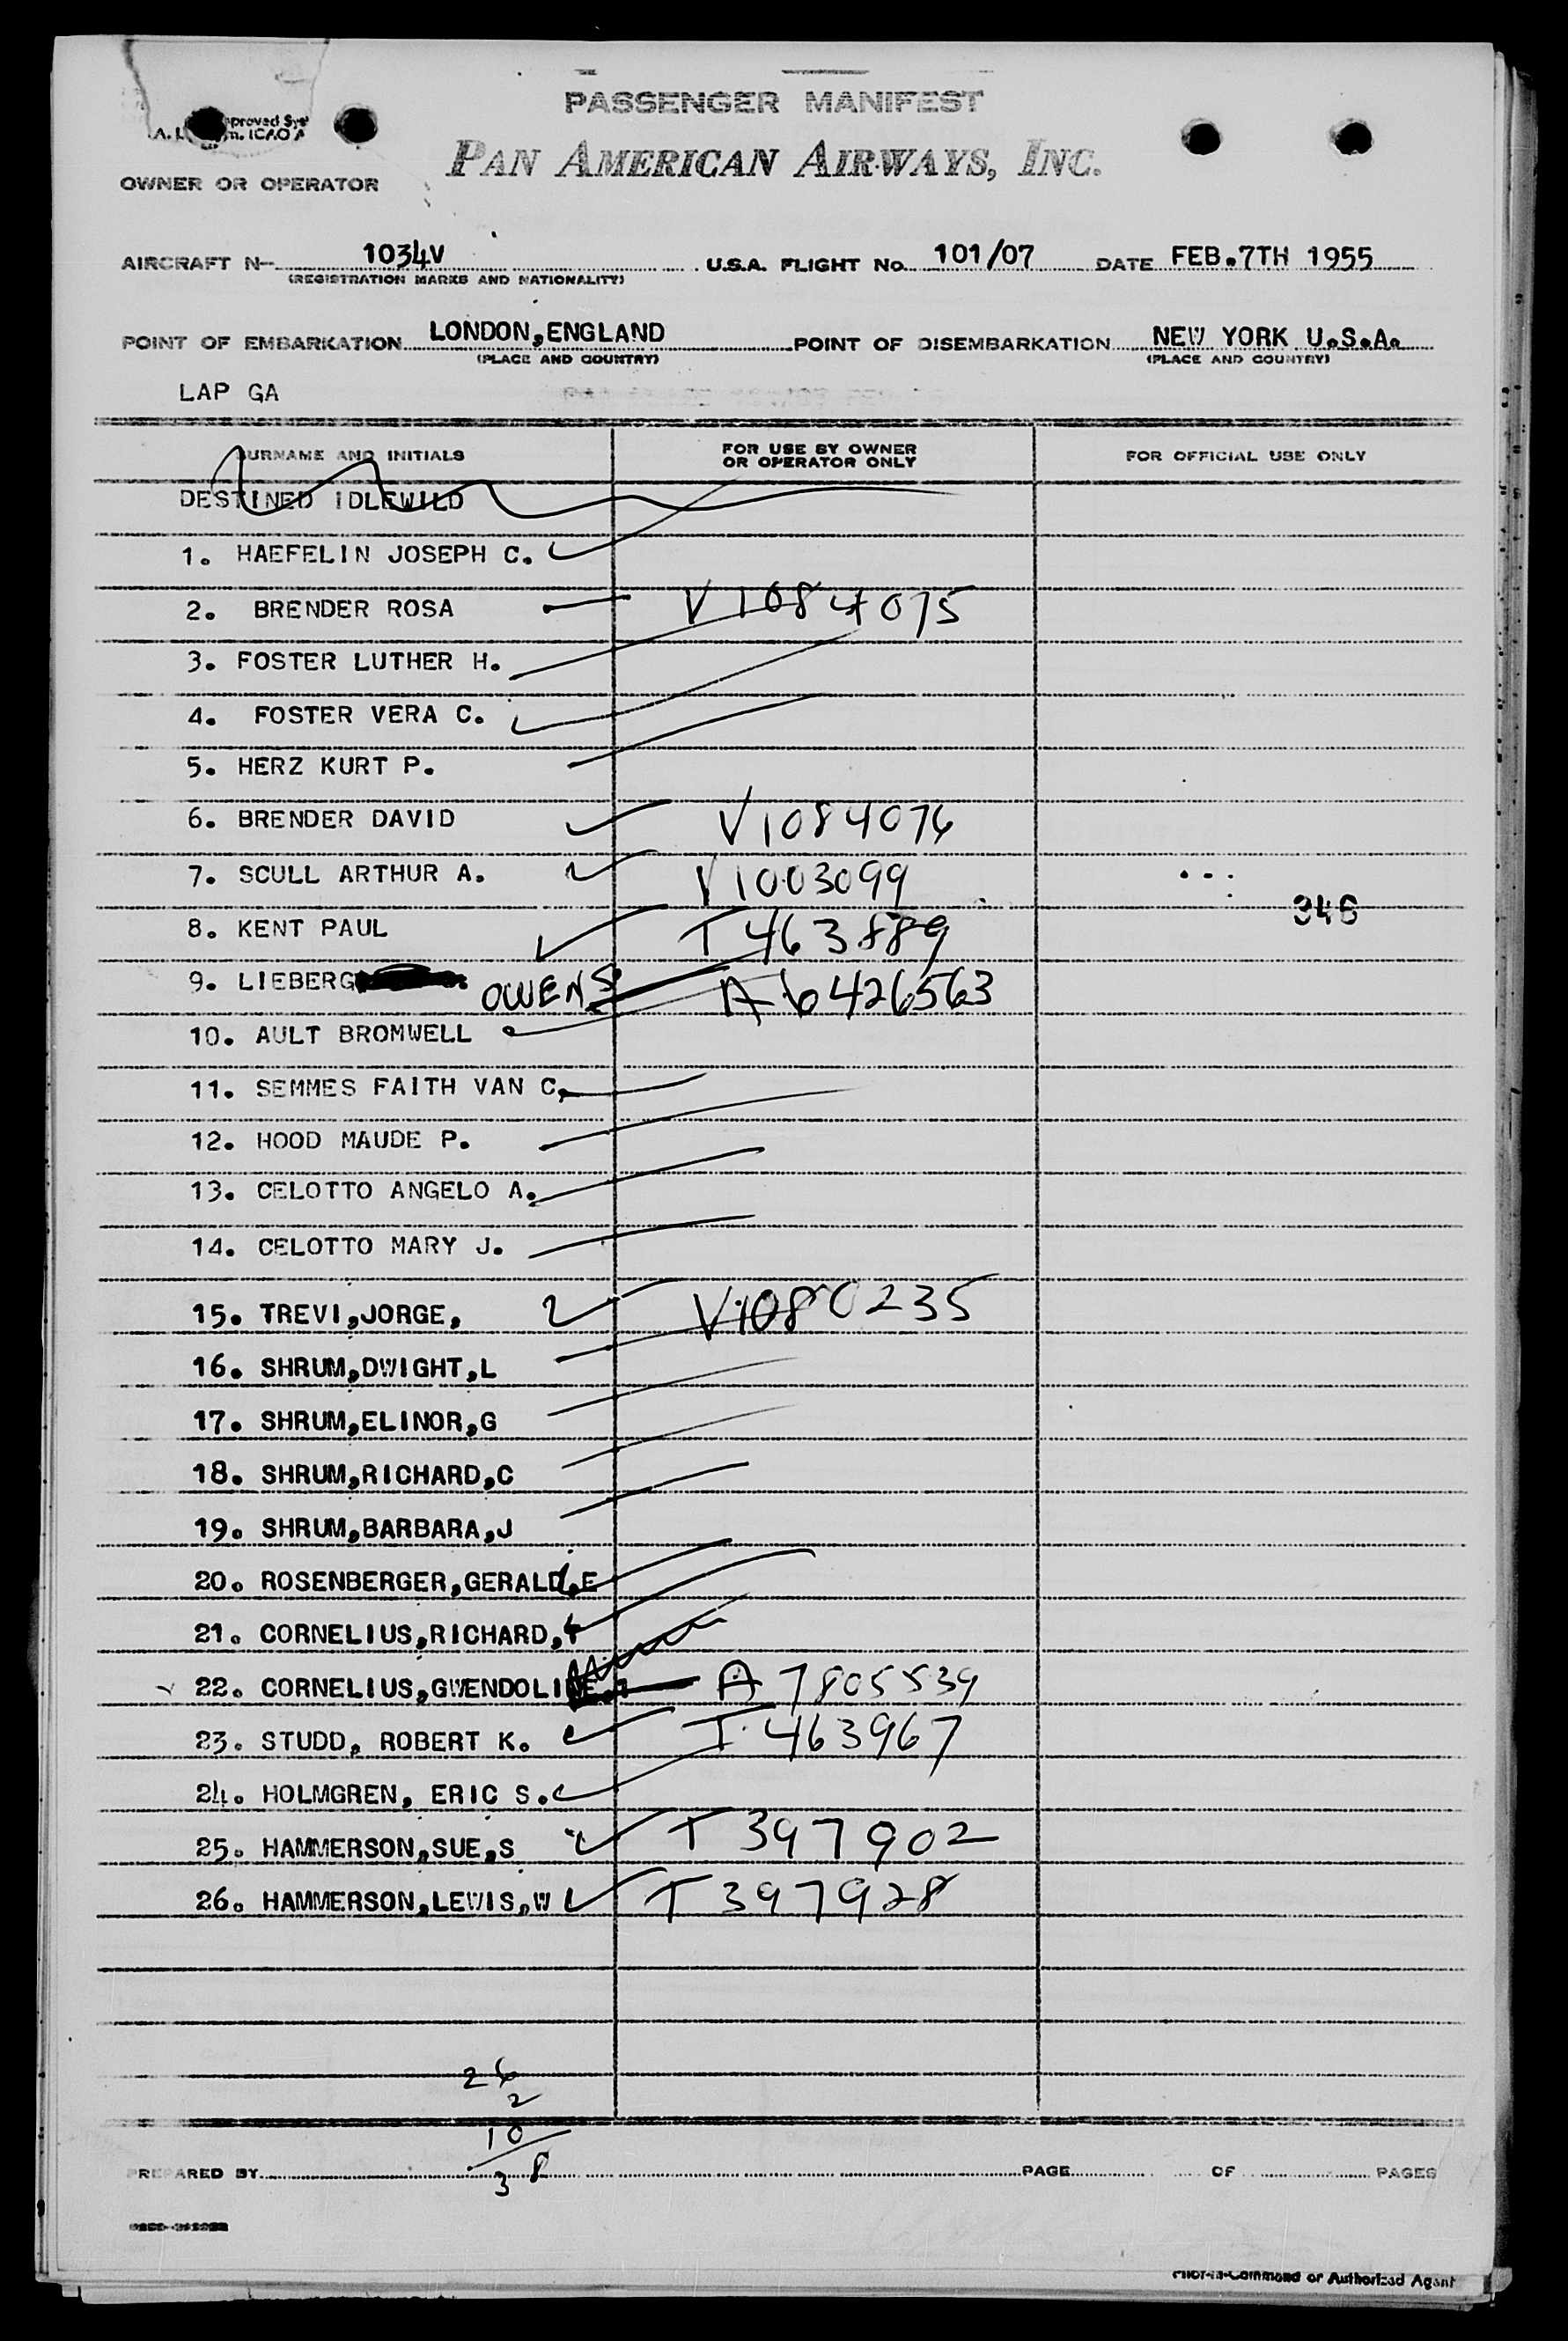 PASSENGER MANIFEST
PAN AMERICAN AIRWAYS, INC.
OWNER OR OPERATOR
AIRCRAFT N- 1034V U.S.A. FLIGHT No. 101/07 DATE FEB.7TH 1955
(REGISTRATION MARKS AND NATIONALITY)
POINT OF EMBARKATION LONDON,ENGLAND POINT OF DISEMBARKATION NEW YORK U.S.A.
(PLACE AND COUNTRY) (PLACE AND COUNTRY)
LAP GA
SURNAME AND INITIALS FOR USE BY OWNER OR OPERATOR ONLY FOR OFFICIAL USE ONLY
DESTINED IDLEWILD
1. HAEFELIN JOSEPH C.
2. BRENDER ROSA V1084075
3. FOSTER LUTHER H.
4. FOSTER VERA C.
5. HERZ KURT P.
6. BRENDER DAVID V1084076
7. SCULL ARTHUR A. V1003099
346
8. KENT PAUL T 463889
9. LIEBERG OWENS A 6426563
10. AULT BROMWELL
11. SEMMES FAITH VAN C.
12. HOOD MAUDE P.
13. CELOTTO ANGELO A.
14. CELOTTO MARY J.
15. TREVI,JORGE, V1080235
16. SHRUM,DWIGHT,L
17. SHRUM,ELINOR,G
18. SHRUM,RICHARD,C
19. SHRUM,BARBARA,J
20. ROSENBERGER,GERALD,E
21. CORNELIUS,RICHARD,
22. CORNELIUS,GWENDOLINE A 7805539
23. STUDD, ROBERT K. T 463967
24. HOLMGREN, ERIC S.
25. HAMMERSON,SUE,S T 397902
26. HAMMERSON,LEWIS,W T 397928
26
2
10
38
PREPARED BY PAGE OF PAGES
Pilot-in-Command or Authorized Agent